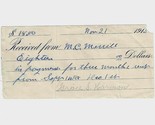 $18.00 Nov 21 1912
Received from M.C. Merritt
Eighteen Dollars
in payment for three months rent
from Sept 1st to Dec 1st